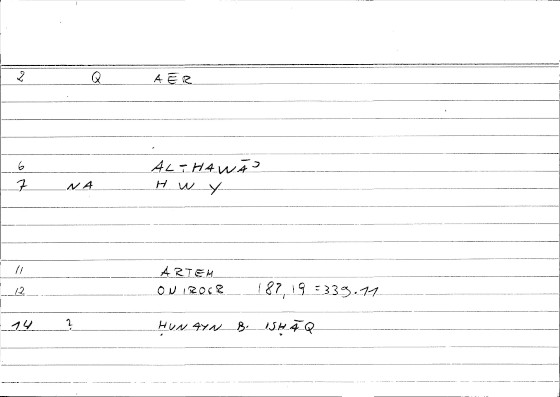 2 Q AĒR
6 AL-HAWĀʾ
7 NA H W Y
11 ARTEM
12 ONIROCR 187,19 = 339.11
14 ? ḤUNAYN B. ISḤĀQ